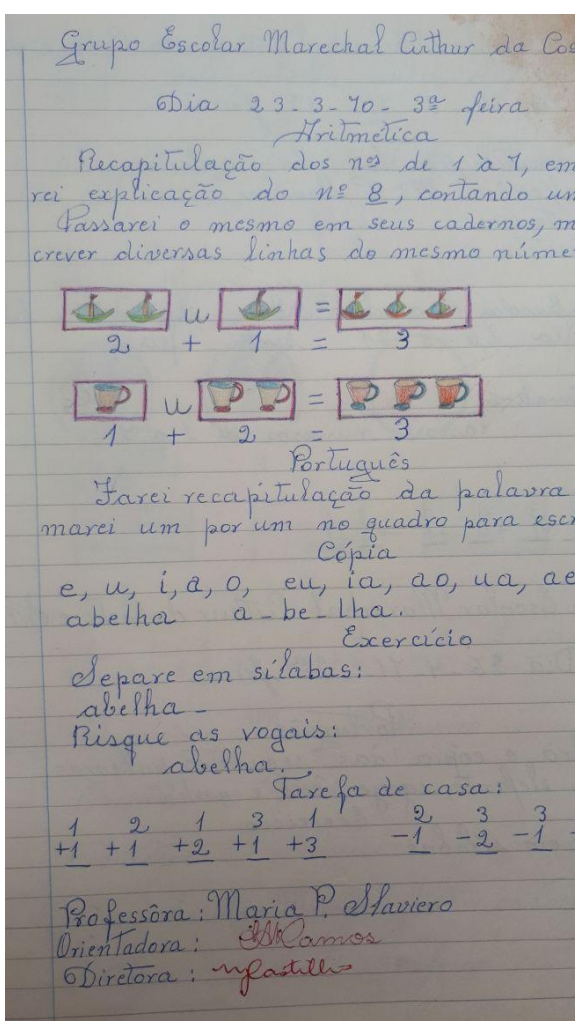 Grupo Escolar Marechal Arthur da Cos
Dia 23-3-70- 3ª feira
Aritmética
Recapitulação dos nºs de 1 à 7, em
rei explicação do nº 8, contando um
Passarei o mesmo em seus cadernos, m
crever diversas linhas do mesmo núme
u =
2 + 1 = 3
u =
1 + 2 = 3
Português
Farei recapitulação da palavra
marei um por um no quadro para escr
Cópia
e, u, i, a, o, eu, ia, ao, ua, ae
abelha a-be-lha.
Exercício
Separe em sílabas:
abelha-
Risque as vogais:
abelha.
Tarefa de casa:
1 2 1 3 1 2 3 3
+1 +1 +2 +1 +3 -1 -2 -1 -
Professôra: Maria P. Slaviero
Orientadora: Ramos
Diretora: